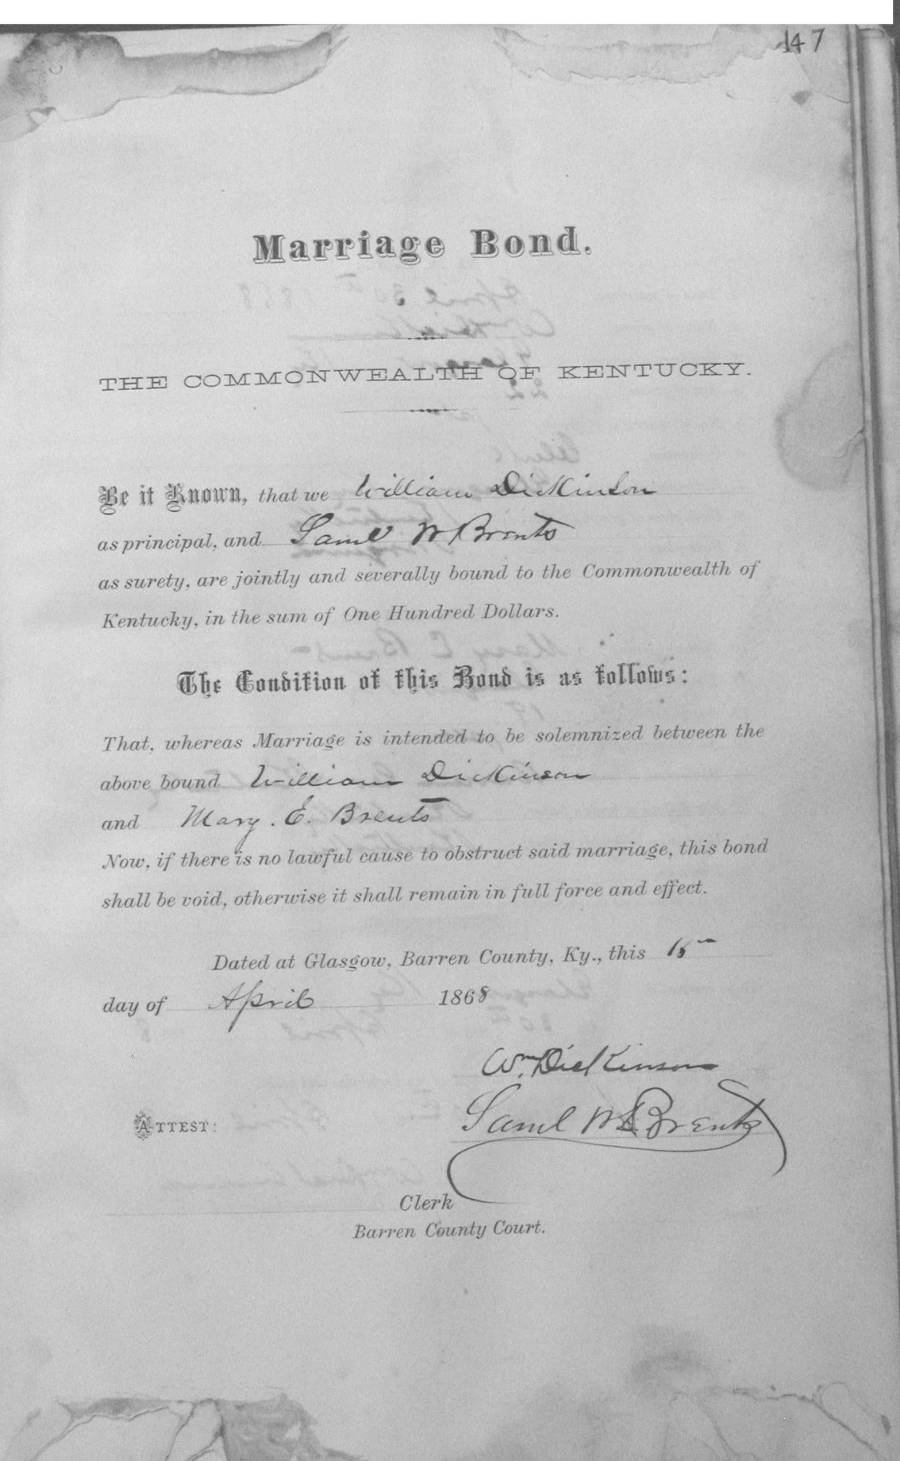 147
Marriage Bond.
THE COMMONWEALTH OF KENTUCKY.
Be it Known, that we William Dickinson
as principal, and Saml W Brents
as surety, are jointly and severally bound to the Commonwealth of
Kentucky, in the sum of One Hundred Dollars.
The Condition of this Bond is as follows:
That, whereas Marriage is intended to be solemnized between the
above bound William Dickinson
and Mary. E. Brents
Now, if there is no lawful cause to obstruct said marriage, this bond
shall be void, otherwise it shall remain in full force and effect.
Dated at Glasgow, Barren County, Ky., this
day of April 1868
Wm Dickinson
ATTEST: Saml W Brents
Clerk
Barren County Court.